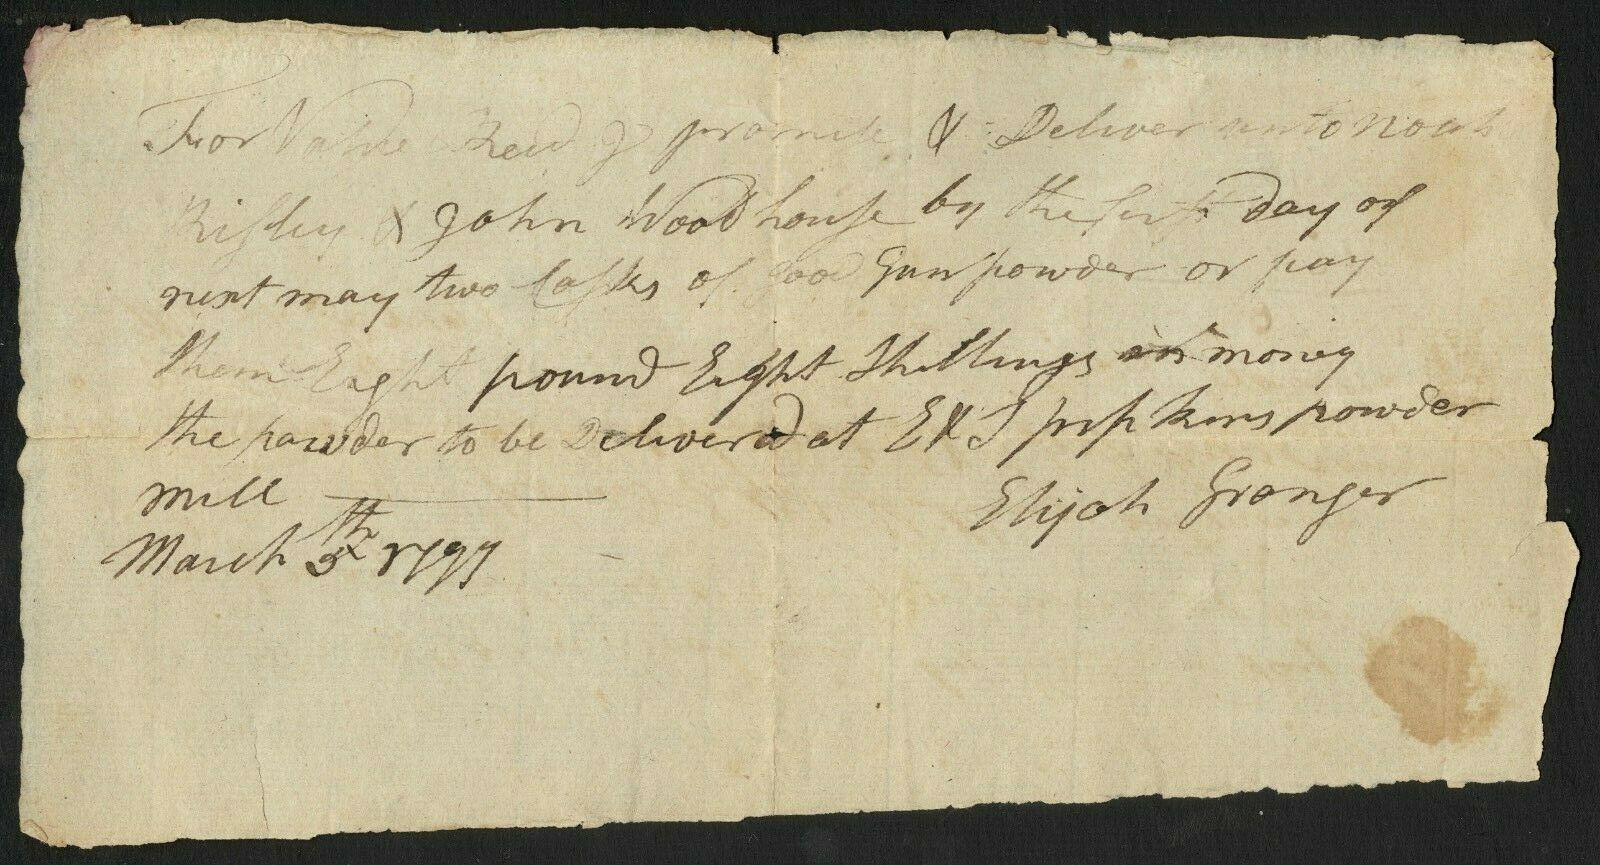 For Value Recd I promise & Deliver unto Noah
Risley & John Woodhouse by the first day of
next may two Casks of Good Gun powder or pay
them Eight pound Eight Shillings in money
the powder to be Deliverd at E & J popkins powder
mill
Elijah Granger
March 5th 1797